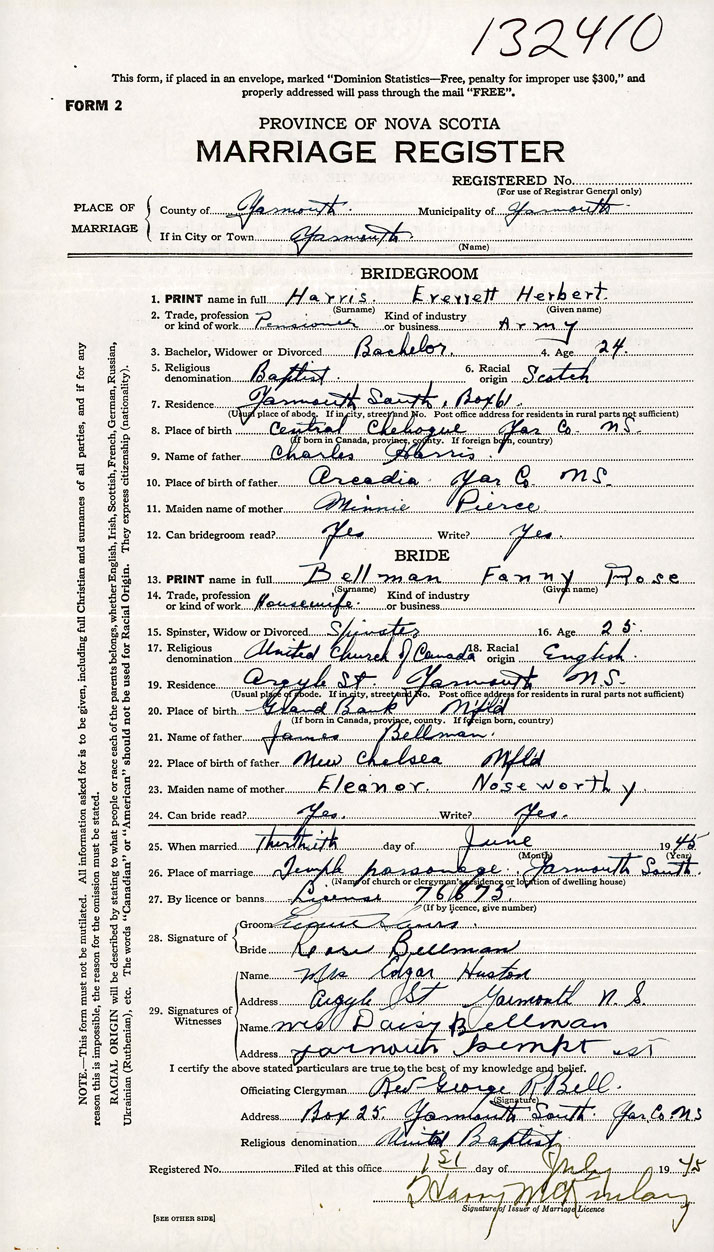 132410
This form, if placed in an envelope, marked "Dominion Statistics—Free, penalty for improper use $300," and
properly addressed will pass through the mail "FREE".
FORM 2
PROVINCE OF NOVA SCOTIA
MARRIAGE REGISTER
REGISTERED No.
(For use of Registrar General only)
PLACE OF MARRIAGE
County of Yarmouth. Municipality of Yarmouth
If in City or Town Yarmouth
(Name)
BRIDEGROOM
1. PRINT name in full Harris. Everett Herbert.
(Surname) (Given name)
2. Trade, profession or kind of work Pensioner Kind of industry or business Army
3. Bachelor, Widower or Divorced Bachelor. 4. Age 24.
5. Religious denomination Baptist. 6. Racial origin Scotch
7. Residence Yarmouth South, Box 61
(Usual place of abode. If in city, street and No. Post office address for residents in rural parts not sufficient)
8. Place of birth Central Chebogue Yar Co. N.S.
(If born in Canada, province, county. If foreign born, country)
9. Name of father Charles Harris.
10. Place of birth of father Arcadia Yar Co. N.S.
11. Maiden name of mother Minnie Pierce
12. Can bridegroom read? Yes Write? Yes.
BRIDE
13. PRINT name in full Bellman Fanny Rose
(Surname) (Given name)
14. Trade, profession or kind of work Housewife. Kind of industry or business
15. Spinster, Widow or Divorced Spinster 16. Age 25.
17. Religious denomination United Church of Canada 18. Racial origin English.
19. Residence Argyle St. Yarmouth N.S.
(Usual place of abode. If in city, street and No. Post office address for residents in rural parts not sufficient)
20. Place of birth Grand Bank Nfld
(If born in Canada, province, county. If foreign born, country)
21. Name of father James Bellman.
22. Place of birth of father New Chelsea Nfld
23. Maiden name of mother Eleanor. Noseworthy
24. Can bride read? Yes. Write? Yes.
25. When married day of June 1945
(Month) (Year)
26. Place of marriage Temple parsonage. Yarmouth South.
(Name of church or clergyman's residence or location of dwelling house)
27. By licence or banns License 76873.
(If by licence, give number)
28. Signature of
Groom
Bride Rose Bellman
29. Signatures of Witnesses
Name Mrs Edgar Huston
Address Argyle St Yarmouth N.S.
Name Mrs Daisy Bellman
Address Yarmouth Kempt st
I certify the above stated particulars are true to the best of my knowledge and belief.
Officiating Clergyman Rev George R Bell.
(Signature)
Address Box 25 Yarmouth South. Yar. Co. N.S
Religious denomination United Baptist
Registered No. Filed at this office 1st day of July 1945
Signature of Issuer of Marriage Licence
[SEE OTHER SIDE]
NOTE.—This form must not be mutilated. All information asked for is to be given, including full Christian and surnames of all parties, and if for any
reason this is impossible, the reason for the omission must be stated.
RACIAL ORIGIN will be described by stating to what people or race each of the parents belongs, whether English, Irish, Scottish, French, German, Russian,
Ukrainian (Ruthenian), etc. The words "Canadian" or "American" should not be used for Racial Origin. They express citizenship (nationality).